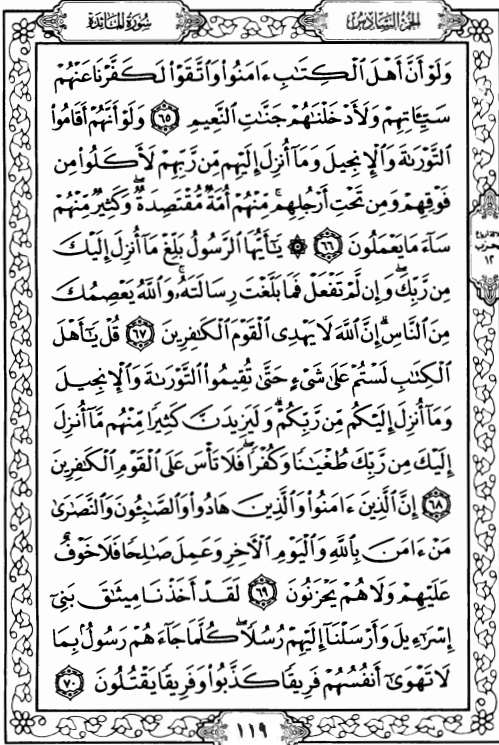 سُورَةُ المَائِدَة
الجُزءُ السَّادِسُ
وَلَوْ أَنَّ أَهْلَ الْكِتَٰبِ ءَامَنُوا وَاتَّقَوْا لَكَفَّرْنَا عَنْهُمْ
سَيِّـَٔاتِهِمْ وَلَأَدْخَلْنَٰهُمْ جَنَّٰتِ النَّعِيمِ ٦٥ وَلَوْ أَنَّهُمْ أَقَامُوا
التَّوْرَىٰةَ وَالْإِنجِيلَ وَمَا أُنزِلَ إِلَيْهِم مِّن رَّبِّهِمْ لَأَكَلُوا مِن
فَوْقِهِمْ وَمِن تَحْتِ أَرْجُلِهِم ۚ مِّنْهُمْ أُمَّةٌ مُّقْتَصِدَةٌ ۖ وَكَثِيرٌ مِّنْهُمْ
سَآءَ مَا يَعْمَلُونَ ٦٦ ۞ يَٰٓأَيُّهَا الرَّسُولُ بَلِّغْ مَآ أُنزِلَ إِلَيْكَ
مِن رَّبِّكَ ۖ وَإِن لَّمْ تَفْعَلْ فَمَا بَلَّغْتَ رِسَالَتَهُۥ ۚ وَاللَّهُ يَعْصِمُكَ
مِنَ النَّاسِ ۗ إِنَّ اللَّهَ لَا يَهْدِى الْقَوْمَ الْكَٰفِرِينَ ٦٧ قُلْ يَٰٓأَهْلَ
الْكِتَٰبِ لَسْتُمْ عَلَىٰ شَىْءٍ حَتَّىٰ تُقِيمُوا التَّوْرَىٰةَ وَالْإِنجِيلَ
وَمَآ أُنزِلَ إِلَيْكُم مِّن رَّبِّكُمْ ۗ وَلَيَزِيدَنَّ كَثِيرًا مِّنْهُم مَّآ أُنزِلَ
إِلَيْكَ مِن رَّبِّكَ طُغْيَٰنًا وَكُفْرًا ۖ فَلَا تَأْسَ عَلَى الْقَوْمِ الْكَٰفِرِينَ
٦٨ إِنَّ الَّذِينَ ءَامَنُوا وَالَّذِينَ هَادُوا وَالصَّٰبِـُٔونَ وَالنَّصَٰرَىٰ
مَنْ ءَامَنَ بِاللَّهِ وَالْيَوْمِ الْـَٔاخِرِ وَعَمِلَ صَٰلِحًا فَلَا خَوْفٌ
عَلَيْهِمْ وَلَا هُمْ يَحْزَنُونَ ٦٩ لَقَدْ أَخَذْنَا مِيثَٰقَ بَنِىٓ
إِسْرَٰٓءِيلَ وَأَرْسَلْنَآ إِلَيْهِمْ رُسُلًا ۖ كُلَّمَا جَآءَهُمْ رَسُولٌۢ بِمَا
لَا تَهْوَىٰٓ أَنفُسُهُمْ فَرِيقًا كَذَّبُوا وَفَرِيقًا يَقْتُلُونَ ٧٠
١١٩